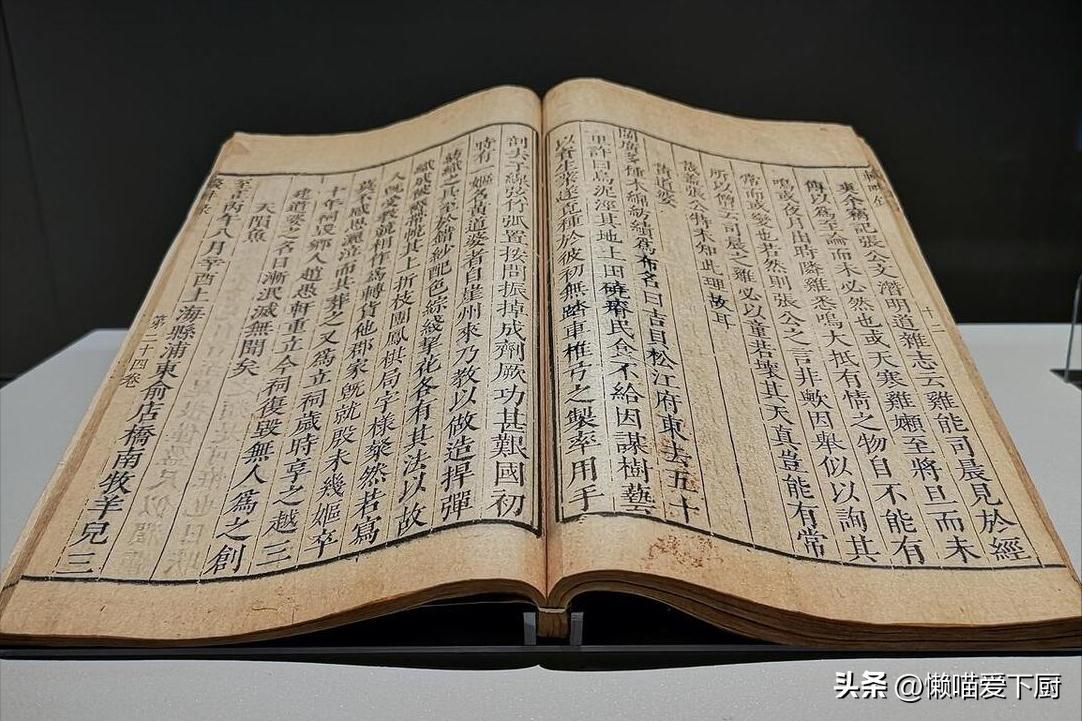 東余竊記張公文潛明道雜志云雞能司晨見於經
傳以為至論而未必然也或天寒雞嬾至將旦而未
鳴或夜月出時隣雞悉鳴大抵有情之物自不能有
常而或變也若然則張公之言非歟因舉似以詢其
所以僧云司晨之雞必以童若壞其天真豈能有常
葢張公特未知此理故耳
黃道婆
閩廣多種木綿紡績為布名曰吉貝松江府東去五十
里許曰烏泥涇其地土田磽瘠民食不給因謀樹藝
以資生業遂覓種於彼初無踏車椎弓之製率用手
剖去子線弦竹弧置按間振掉成劑厥功甚艱國初
時有一嫗名黃道婆者自崖州來乃教以做造捍彈
紡織之具至於錯紗配色綜線挈花各有其法以故
織成被褥帶帨其上折枝團鳳棋局字樣粲然若寫
人既受教競相作為轉貨他郡家既就殷未幾嫗卒
莫不感恩灑泣而共葬之又為立祠歲時享之越三
十年祠毀鄉人趙愚軒重立今祠復毀無人為之創
建道婆之名日漸泯滅無聞矣
天隕魚
至正丙午八月辛酉上海縣浦東俞店橋南牧羊兒三
第二十四卷
头条 @懒喵爱下厨